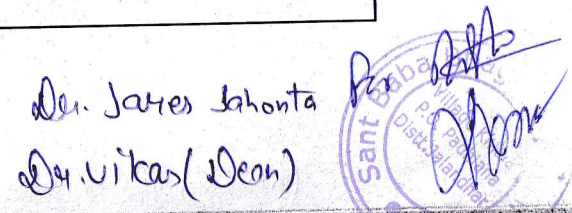 Dr. James Sahonta for
Dr. Vikas (Dean)
Sant Baba
Village
P.O. Padhiana
Distt. Jalandhar